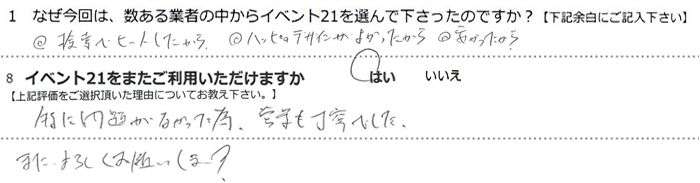 1 なぜ今回は、数ある業者の中からイベント21を選んで下さったのですか？【下記余白にご記入下さい】
◎ 検索でヒットしたから ◎ハッピのデザインがよかったから ◎安かったから
8 イベント21をまたご利用いただけますか はい いいえ
【上記評価をご選択頂いた理由についてお教え下さい。】
特に問題がなかった為、営業も丁寧でした、
また よろしくお願いします